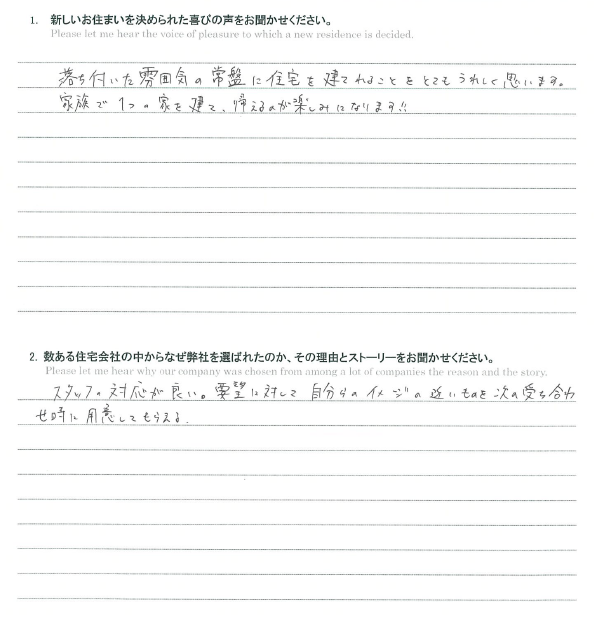 1. 新しいお住まいを決められた喜びの声をお聞かせください。
Please let me hear the voice of pleasure to which a new residence is decided.
落ち付いた雰囲気の常盤に住宅を建てれることをとてもうれしく思います。
家族で1つの家を建て、帰えるのが楽しみになります!!
2. 数ある住宅会社の中からなぜ弊社を選ばれたのか、その理由とストーリーをお聞かせください。
Please let me hear why our company was chosen from among a lot of companies the reason and the story.
スタッフの対応が良い。要望に対して自分らのイメージの近いものを次の受ち合わ
せ時に用意してもらえる。